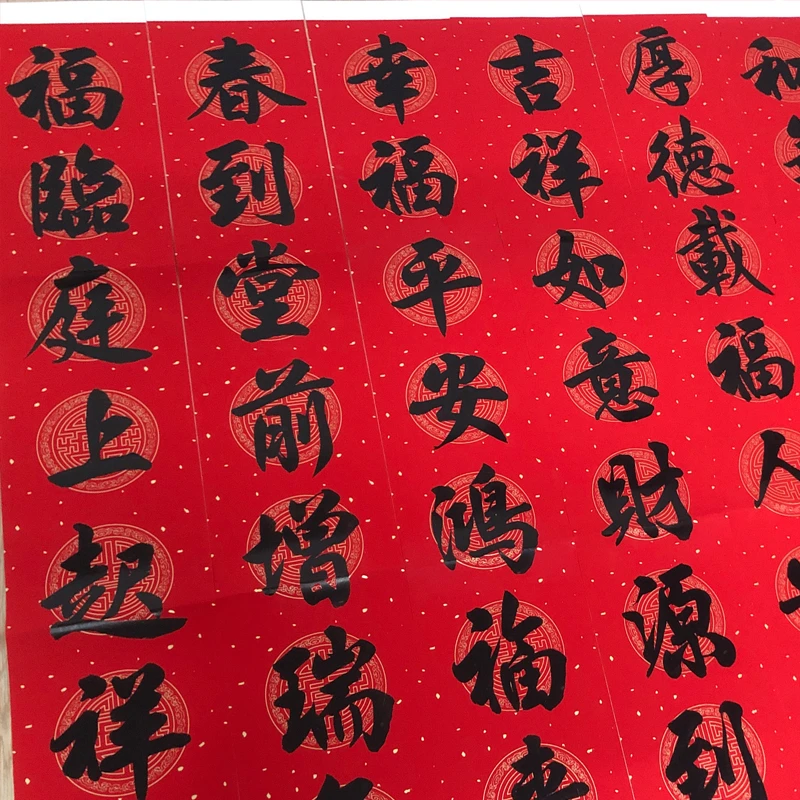 福臨庭上起祥
春到堂前增瑞
幸福平安鴻福来
吉祥如意財源到
厚德載福
和
人